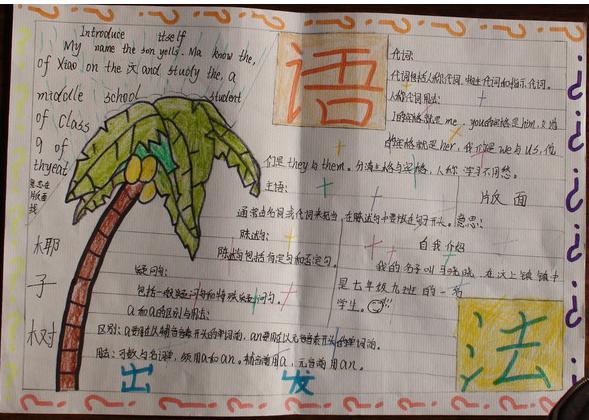 Introduce itself
My name the son yells. Ma know the,
of Xiao on the 汉 and stucty the, a
middle school student
of Class
9 of
thryent
椰
子
树
语
代词:
代词包括人称代词、物主代词和指示代词。
人称代词用法:
I的宾格就是me、you的宾格是him,
的宾格就是her。我们是we与us,他
们是they与them。分清主格与宾格,人称 学习不用愁。
主语:
通常由名词或代词来担当,在陈述句中要放在句子开头。
陈述句:
陈述句包括肯定句和否定句。
疑问句:
包括一般疑问句和特殊疑问句。
a和an的区别与用法:
区别:a要用在以辅音音素开头的单词前,an要用在以元音音素开头的单词前。
用法:可数与名词单,须用a和an。辅音前用a,元音前用an。
出 发
版面
意思:
自我介绍
我的名子叫 在汶上镇 镇中
是七年级九班 的一名
学生。
法